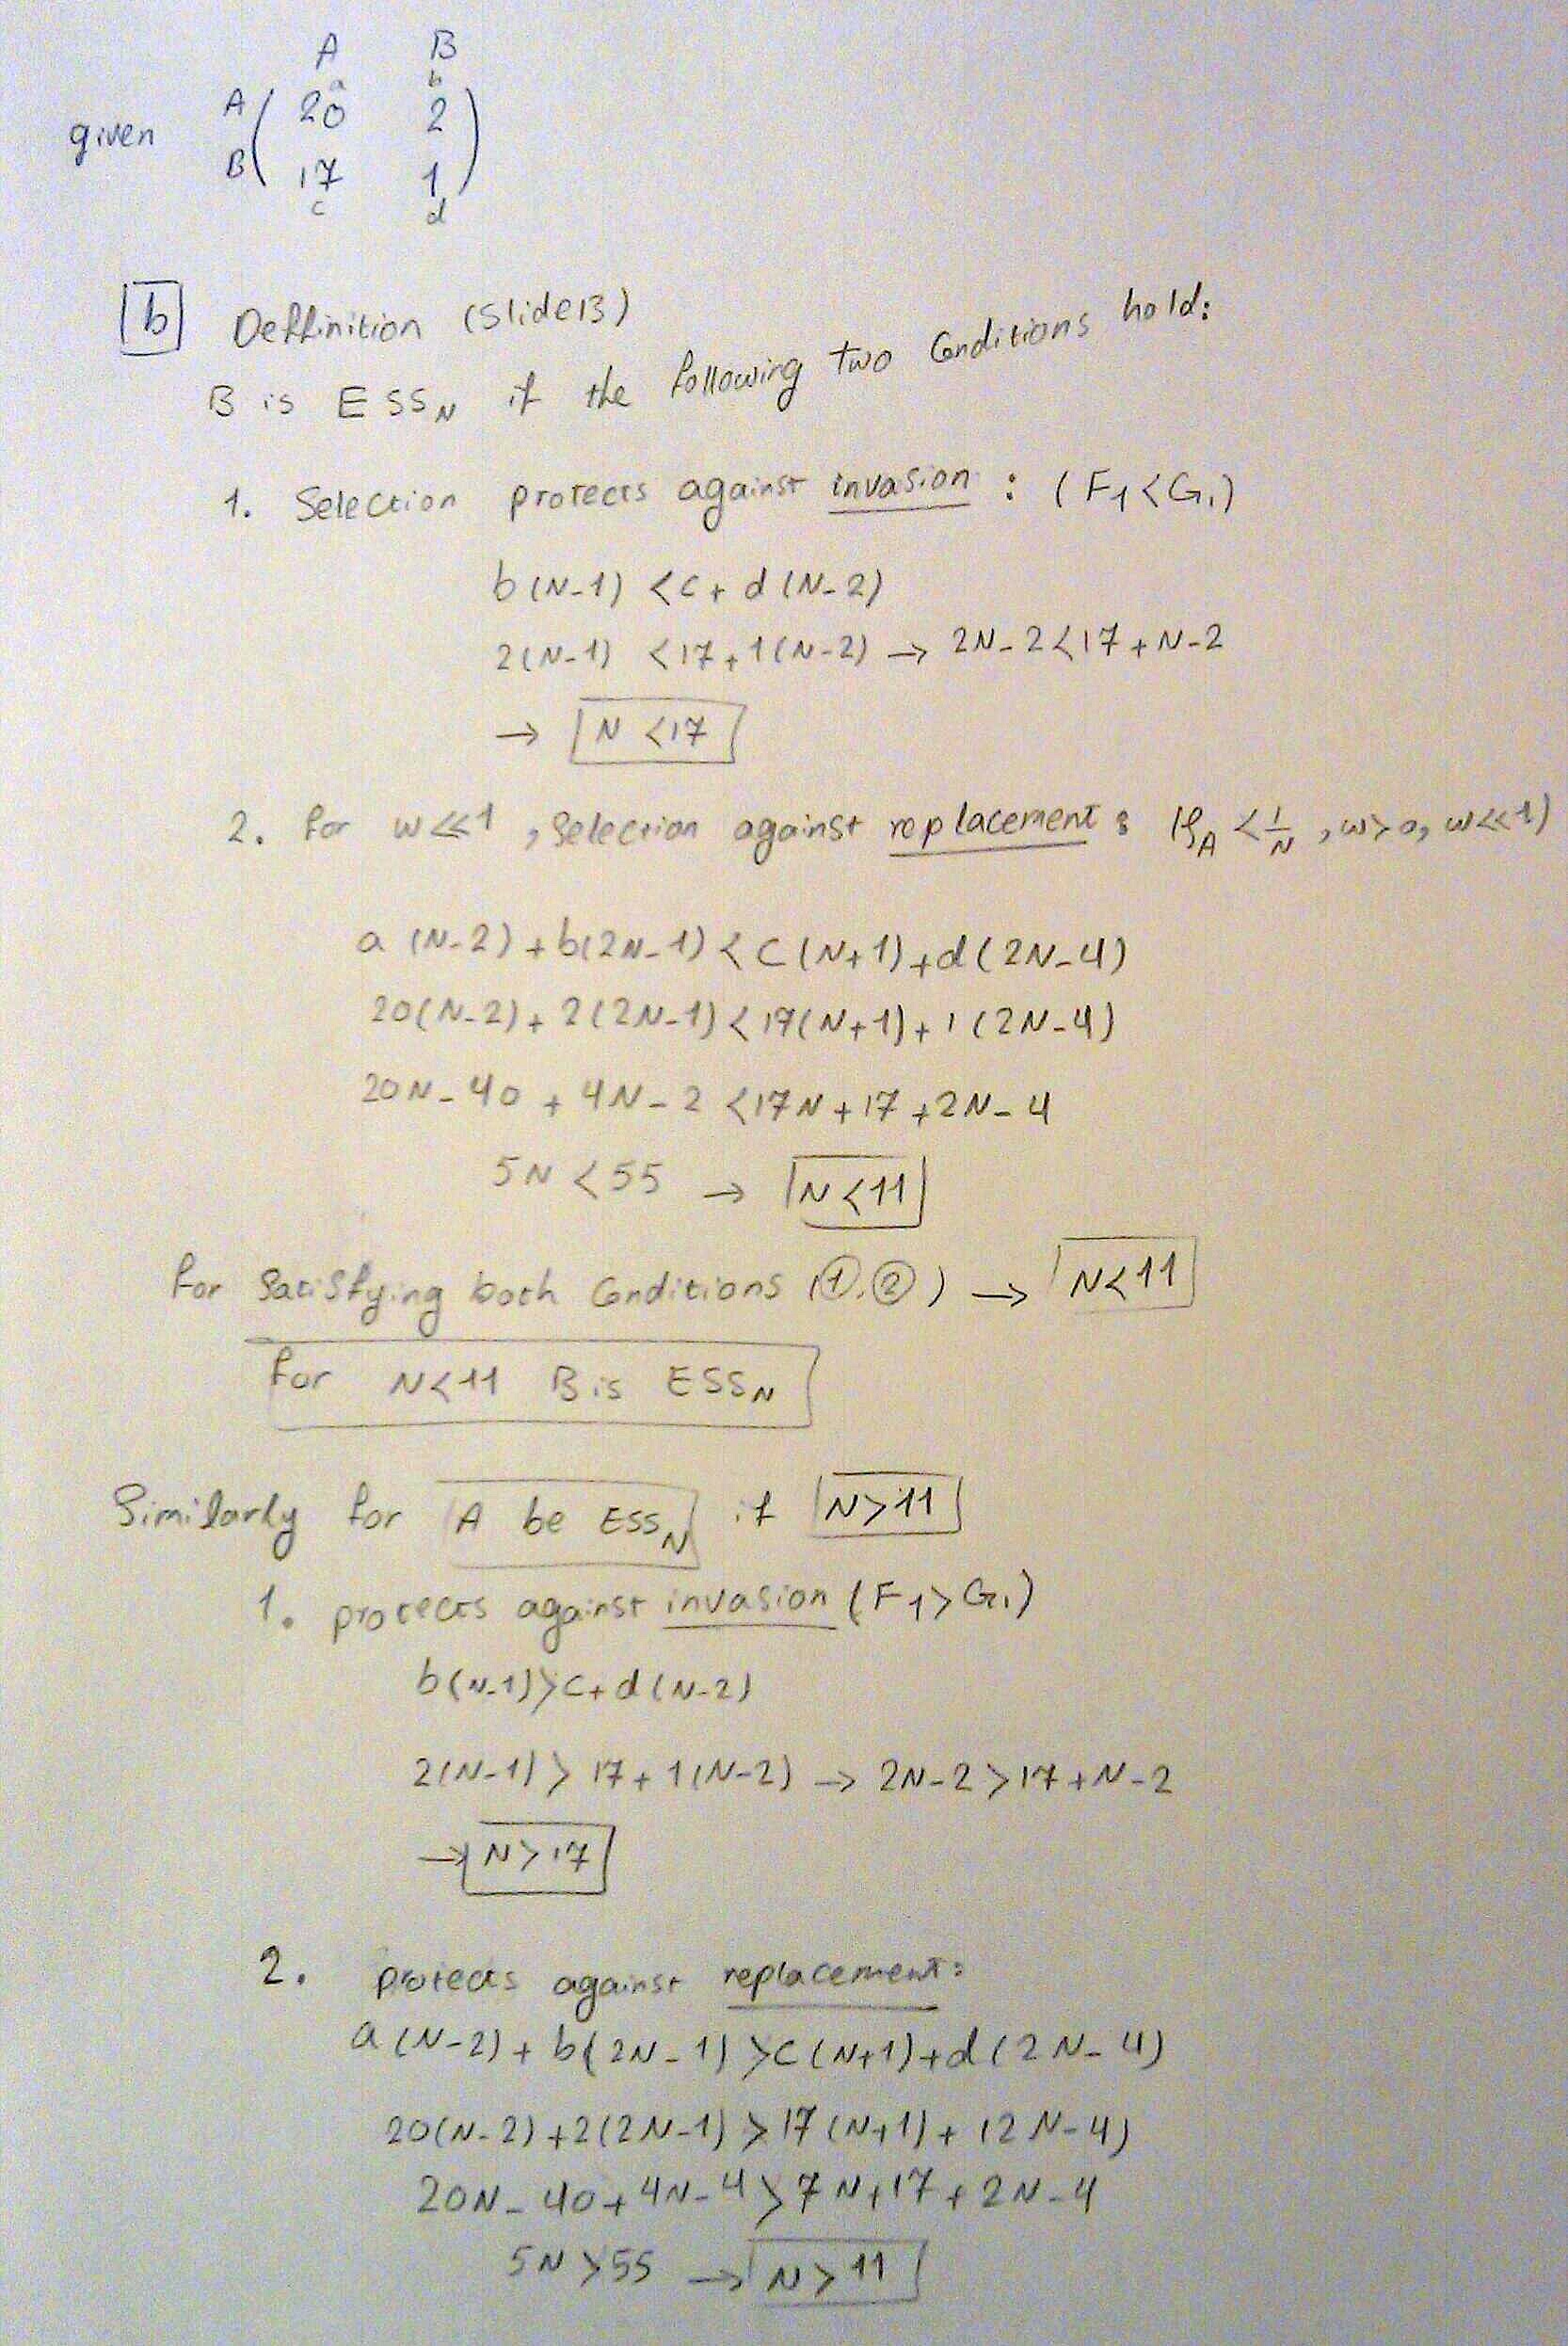 A B
a b
given A ( 20 2 )
B ( 17 1 )
c d
b Deffinition (Slide13)
B is ESS_N if the following two Conditions hold:
1. Selection protects against invasion : (F₁<G₁)
b(N-1) <c+d(N-2)
2(N-1) <17+1(N-2) → 2N-2<17+N-2
→ N <17
2. for w≪1 , Selection against replacement : (ρ_A < 1/N , w>0, w≪1)
a (N-2)+b(2N-1)< C(N+1)+d(2N-4)
20(N-2)+2(2N-1)<17(N+1)+1(2N-4)
20N-40+4N-2<17N+17+2N-4
5N<55 → N<11
for Satisfying both Conditions (①,②) → N<11
for N<11 B is ESS_N
Similarly for A be ESS_N if N>11
1. protects against invasion (F₁>G₁)
b(N-1)>c+d(N-2)
2(N-1)>17+1(N-2) → 2N-2>17+N-2
→ N>17
2. protects against replacement:
a(N-2)+b(2N-1)>c(N+1)+d(2N-4)
20(N-2)+2(2N-1)>17(N+1)+(2N-4)
20N-40+4N-4>7N+17+2N-4
5N>55 → N>11